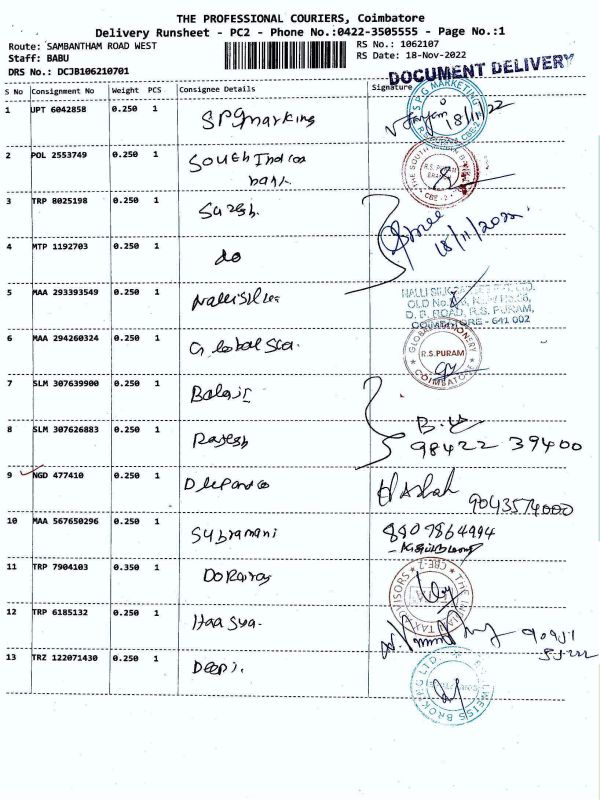 THE PROFESSIONAL COURIERS, Coimbatore
Delivery Runsheet - PC2 - Phone No.:0422-3505555 - Page No.:1
Route: SAMBANTHAM ROAD WEST
Staff: BABU
DRS No.: DCJB106210701
RS No.: 1062107
RS Date: 18-Nov-2022
DOCUMENT DELIVERY
S No Consignment No Weight PCS Consignee Details Signature
1 UPT 6042858 0.250 1 SPG marking 18/11/22
SPG MARKETING
2 POL 2553749 0.250 1 South Indian
bank
R.S. PURAM
CBE - 2
3 TRP 8025198 0.250 1 Suresh
18/11/2022
4 MTP 1192703 0.250 1 do
5 MAA 293393549 0.250 1 Nallisilks
D. B. ROAD, R.S. PURAM,
COIMBATORE - 641 002
6 MAA 294260324 0.250 1 Global Sta.
GLOBAL STATIONERY
R.S.PURAM
COIMBATORE
7 SLM 307639900 0.250 1 Balaji
8 SLM 307626883 0.250 1 Rajesh
98422 39400
9 NGD 477410 0.250 1 Deepandoo
9043574000
10 MAA 567650296 0.250 1 Subramani 8807864994
11 TRP 7904103 0.350 1 Dorairaj
CBE-2
TAX ADVISORS
12 TRP 6185132 0.250 1 Haasya.
13 TRZ 122071430 0.250 1 Deepi.